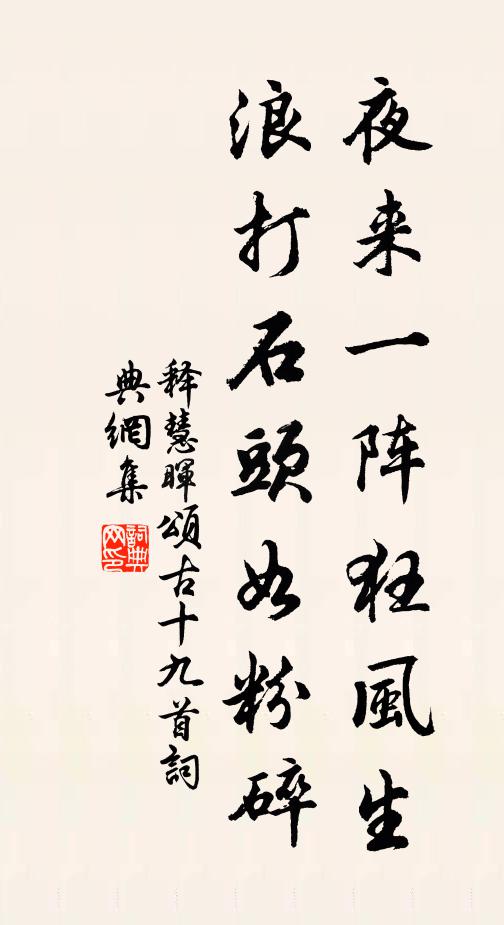 夜来一阵狂風生
浪打石頭如粉碎
释慧暉頌古十九首詞
典網集
詞典
网印